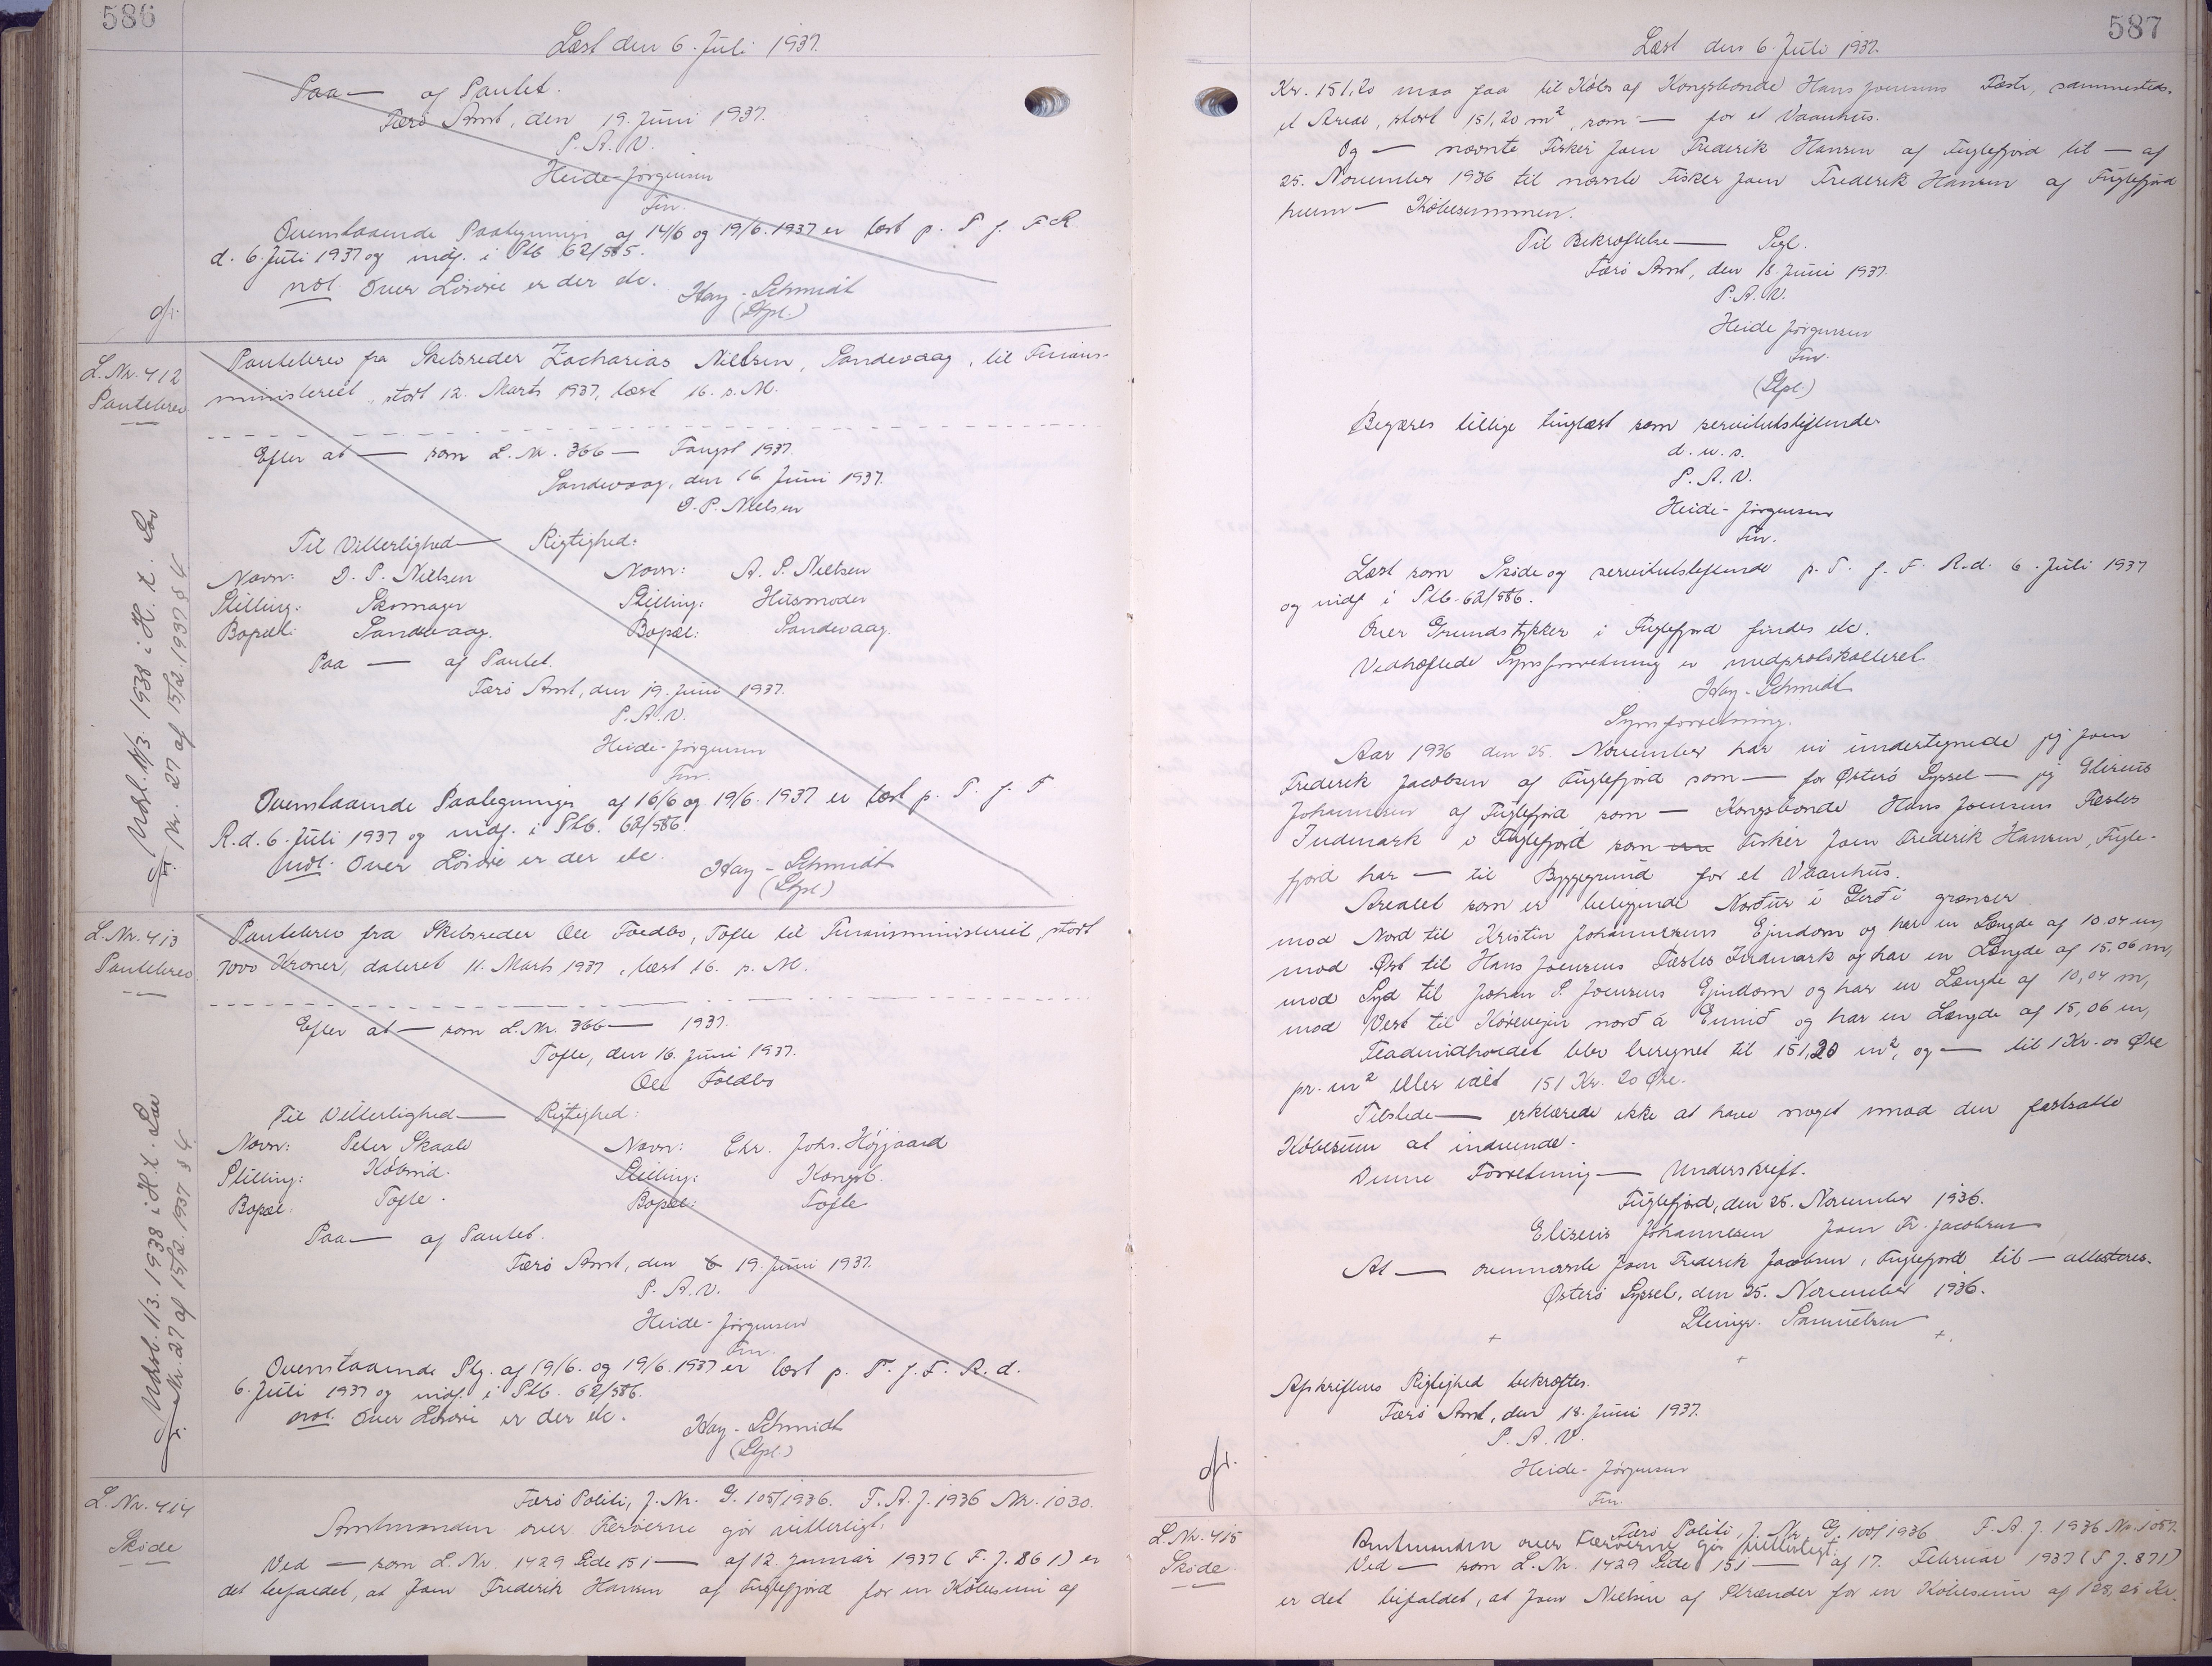 586
Læst den 6. Juli 1937.
Paa — af Pantet.
Færø Amt, den 19. Juni 1937.
P. A. V.
Heide-Jørgensen
Fm.
Ovenstaaende Paategninger af 14/6 og 19/6. 1937 er læst p. T. f. F R
d. 6. Juli 1937 og indf. i Ptb 62/585.
not. Over Løsøre er der etc. Hay-Schmidt
(Stpl.)
L. Nr. 412
Pantebrev
Pantebrev fra Skibsreder Zacharias Nielsen, Sandevaag, til Finans-
ministeriet, stort 12. Marts 1937, læst 16. s. M.
Efter at — som L. Nr. 366 — Fangst 1937.
Sandevaag, den 16. Juni 1937.
D. P. Nielsen
Til Vitterlighed — Rigtighed:
Navn: D. P. Nielsen Navn: A. S. Nielsen
Stilling: Skomager Stilling: Husmoder
Bopæl: Sandevaag. Bopæl: Sandevaag.
Paa — af Pantet.
Færø Amt, den 19. Juni 1937.
P. A. V.
Heide-Jørgensen
Fm.
Ovenstaaende Paategninger af 16/6 og 19/6. 1937 er læst p. T. f. F
R. d. 6. Juli 1937 og indf. i Ptb. 62/586.
not. Over Løsøre er der etc. Hay-Schmidt
(Stpl.)
Udsl. 11/3. 1938 i H. t. Lov
Nr. 27 af 15/2. 1937 § 4
L. Nr. 413
Pantebrev
Pantebrev fra Skibsreder Ole Toedbo, Tofte til Finansministeriet, stort
7000 Kroner, dateret 11. Marts 1937, læst 16. s. M.
Efter at — som L. Nr. 366 — 1937.
Tofte, den 16. Juni 1937.
Ole Toedbo
Til Vitterlighed — Rigtighed:
Navn: Peter Skaale Navn: Chr. Johs. Højgaard
Stilling: Købmd. Stilling: Kongsb.
Bopæl: Tofte. Bopæl: Tofte
Paa — af Pantet.
Færø Amt, den 19. Juni 1937.
P. A. V.
Heide-Jørgensen
Fm.
Ovenstaaende Ptg. af 19/6. og 19/6. 1937 er læst p. T. f. F. R. d.
6. Juli 1937 og indf. i Ptb. 62/586.
not. Over Løsøre er der etc. Hay-Schmidt
(Stpl.)
Udsl. 11/3. 1938 i H. t. Lov
Nr. 27 af 15/2. 1937 § 4
L. Nr. 414
Skøde
Færø Politi, J. Nr. G. 105/1936. F. A. J. 1936 Nr. 1030.
Amtmanden over Færøerne gør vitterligt,
Ved — som L. Nr. 1429 Side 151 — af 12. Januar 1937 (F. J. 861) er
det bifaldet, at Joen Frederik Hansen af Fuglefjord for en Købesum af
587
Læst den 6. Juli 1937.
Kr. 151,20 maa faa til Købs af Kongsbonde Hans Joensens Fæste, sammesteds,
et Areal, stort 151,20 m², som — for et Vaanhus.
Og — nævnte Fisker Joen Frederik Hansen af Fuglefjord til — af
25. November 1936 til nævnte Fisker Joen Frederik Hansen af Fuglefjord
hvem — Købesummen.
Til Bekræftelse — Segl.
Færø Amt, den 18. Juni 1937.
P. A. V.
Heide Jørgensen
Fm.
(Stpl.)
Begæres tillige tinglæst som servitutstiftende
d. u. s.
P. A. V.
Heide-Jørgensen
Fm.
Læst som Skøde og servitutstiftende p. T. f. F. R. d. 6. Juli 1937
og indf i Ptb. 62/586.
Over Grundstykker i Fuglefjord findes etc.
Vedhæftede Synsforretning er medprotokolleret.
Hay-Schmidt
Synsforretning.
Aar 1936 den 25. November har vi undertegnede jeg Joen
Frederik Jacobsen af Fuglefjord som — for Østerø Syssel — jeg Eliseus
Johannesen af Fuglefjord som — Kongsbonde Hans Joensens Fæstes
Indmark i Fuglefjord som Fisker Joen Frederik Hansen, Fugle-
fjord har — til Byggegrund for et Vaanhus.
Arealet som er beliggende Nordur i Gerdi grænser
mod Nord til Kristin Johannesens Ejendom og har en Længde af 10.04 m,
mod Øst til Hans Joensens Fæstes Indmark og har en Længde af 15.06 m,
mod Syd til Johan P. Joensens Ejendom og har en Længde af 10,04 m,
mod Vest til Kørevejen norð á Ennið og har en Længde af 15,06 m,
Fladeindholdet blev beregnet til 151,20 m², og — til 1 Kr. 00 Øre
pr. m² eller ialt 151 Kr. 20 Øre.
Tilstede — erklærede ikke at have noget imod den fastsatte
Købesum at indvende.
Denne Forretning — Underskrift.
Fuglefjord, den 25. November 1936.
Eliseus Johannesen Joen Fr. Jacobsen
At — ovennævnte Joen Frederik Jacobsen, Fuglefjord til — attesteres.
Østerø Syssel, den 25. November 1936.
Steingr. Samuelsen
Afskriftens Rigtighed bekræftes.
Færø Amt, den 18. Juni 1937.
P. A. V.
Heide-Jørgensen
Fm.
L. Nr. 415
Skøde
Færø Politi, J. Nr. G. 100/1936 F. A. J. 1936 Nr. 1057.
Amtmanden over Færøerne gør vitterligt:
Ved — som L. Nr. 1429 Side 151 — af 17. Februar 1937 (F J. 871)
er det bifaldet, at Joen Nielsen af Strænder for en Købesum af 128,25 Kr.